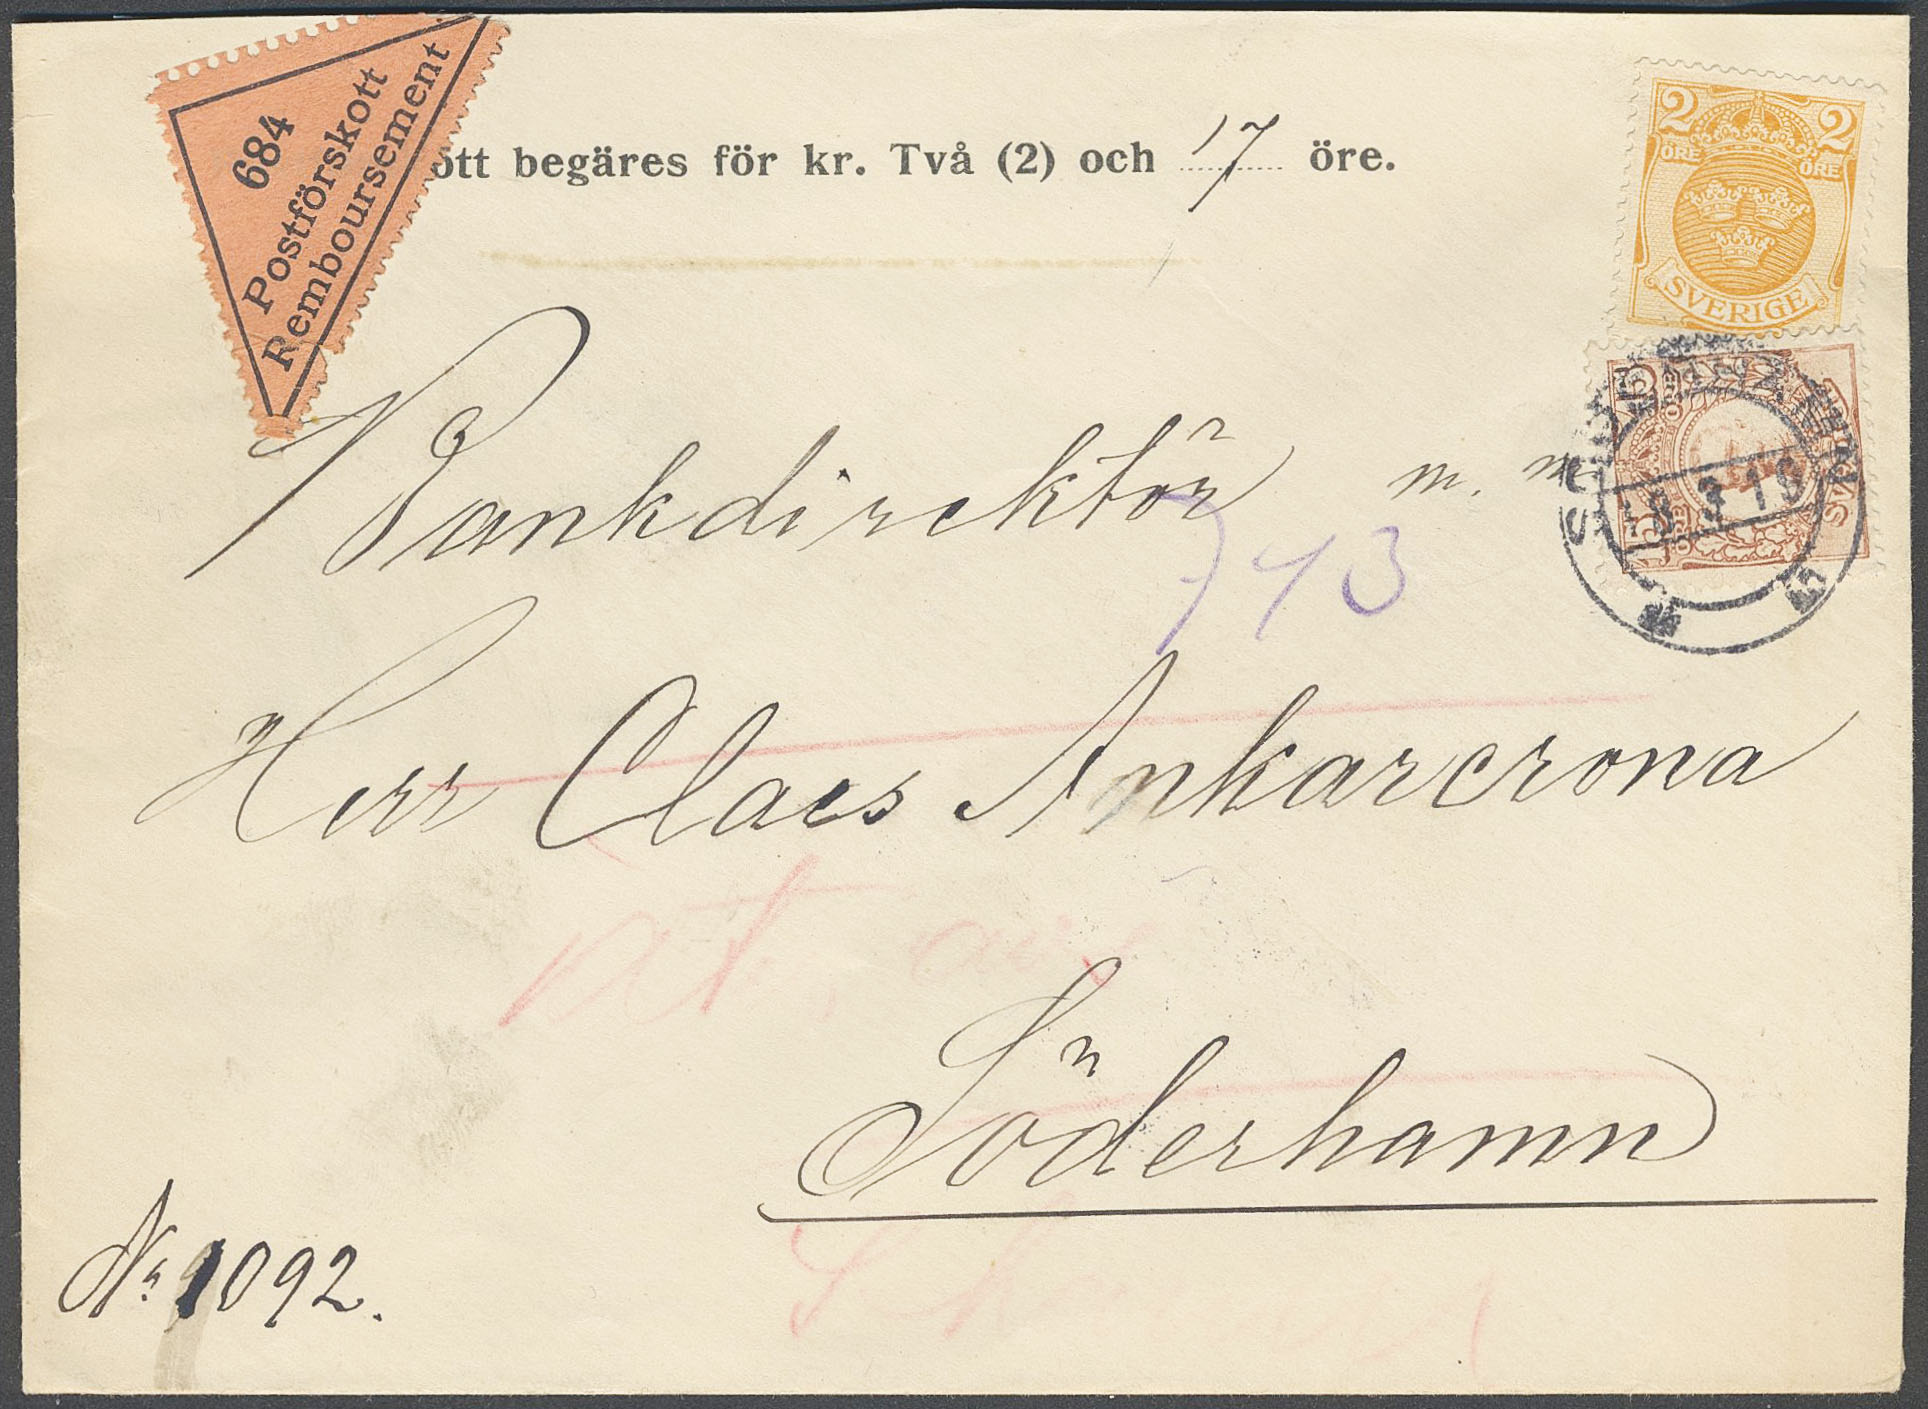 684
Postförskott
Remboursement
ott begäres för kr. Två (2) och 17 öre.
2 2
ÖRE ÖRE
SVERIGE
Bankdirektör m. m.
743
Herr Claes Ankarcrona
Söderhamn
No 1092.